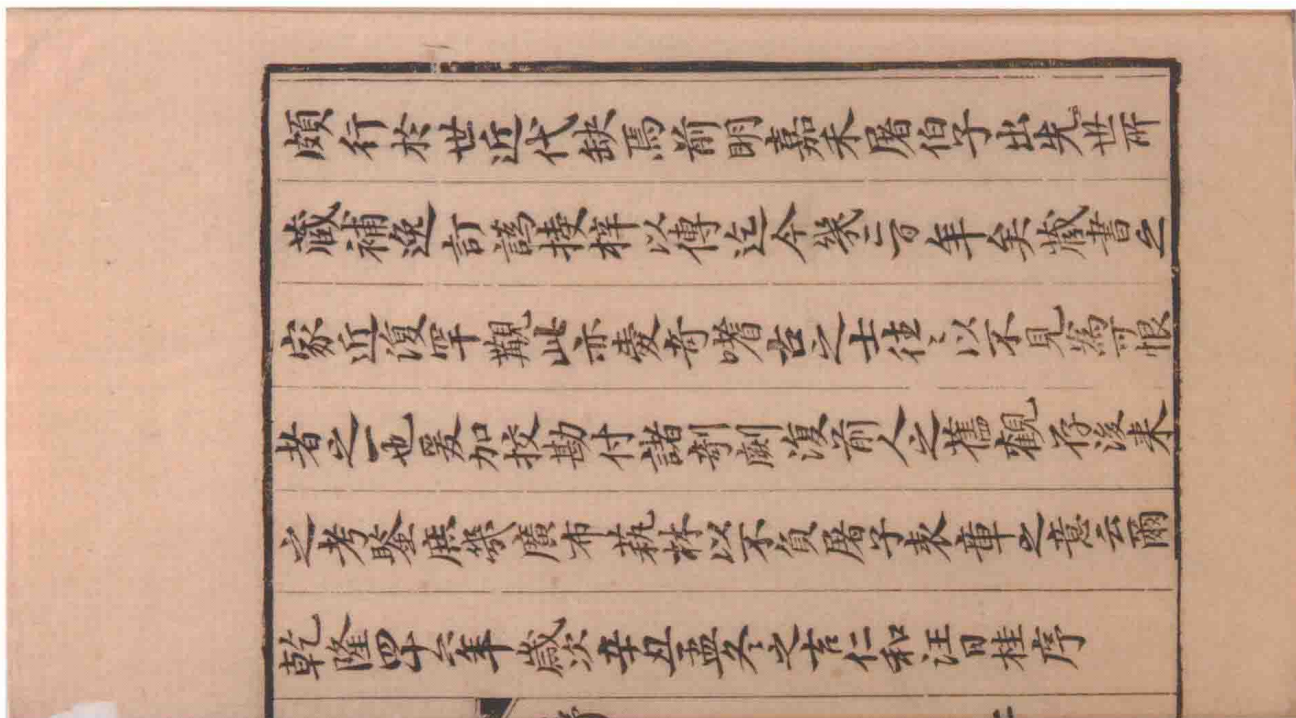 頗行於世近代缺焉前明嘉禾屠伯子出先世所
藏補逸訂譌授梓以傳迄今幾二百年矣藏書之
家近復罕覯此亦愛奇嗜古之士往〻以不見為可恨
者之一也爰加挍勘付諸剞劂復前人之舊觀存後来
之考鑒庶幾廣布蓺林以不負屠子表章之意云爾
乾隆四十六年歲次辛丑孟冬之吉仁和汪日桂序